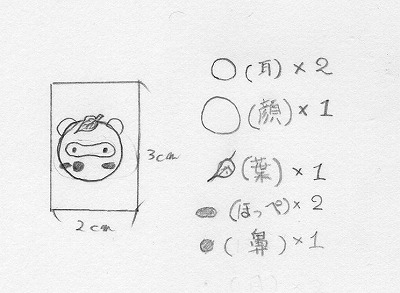 3cm
2cm
(耳) × 2
(顔) × 1
(葉) × 1
(ほっぺ) × 2
(鼻) × 1